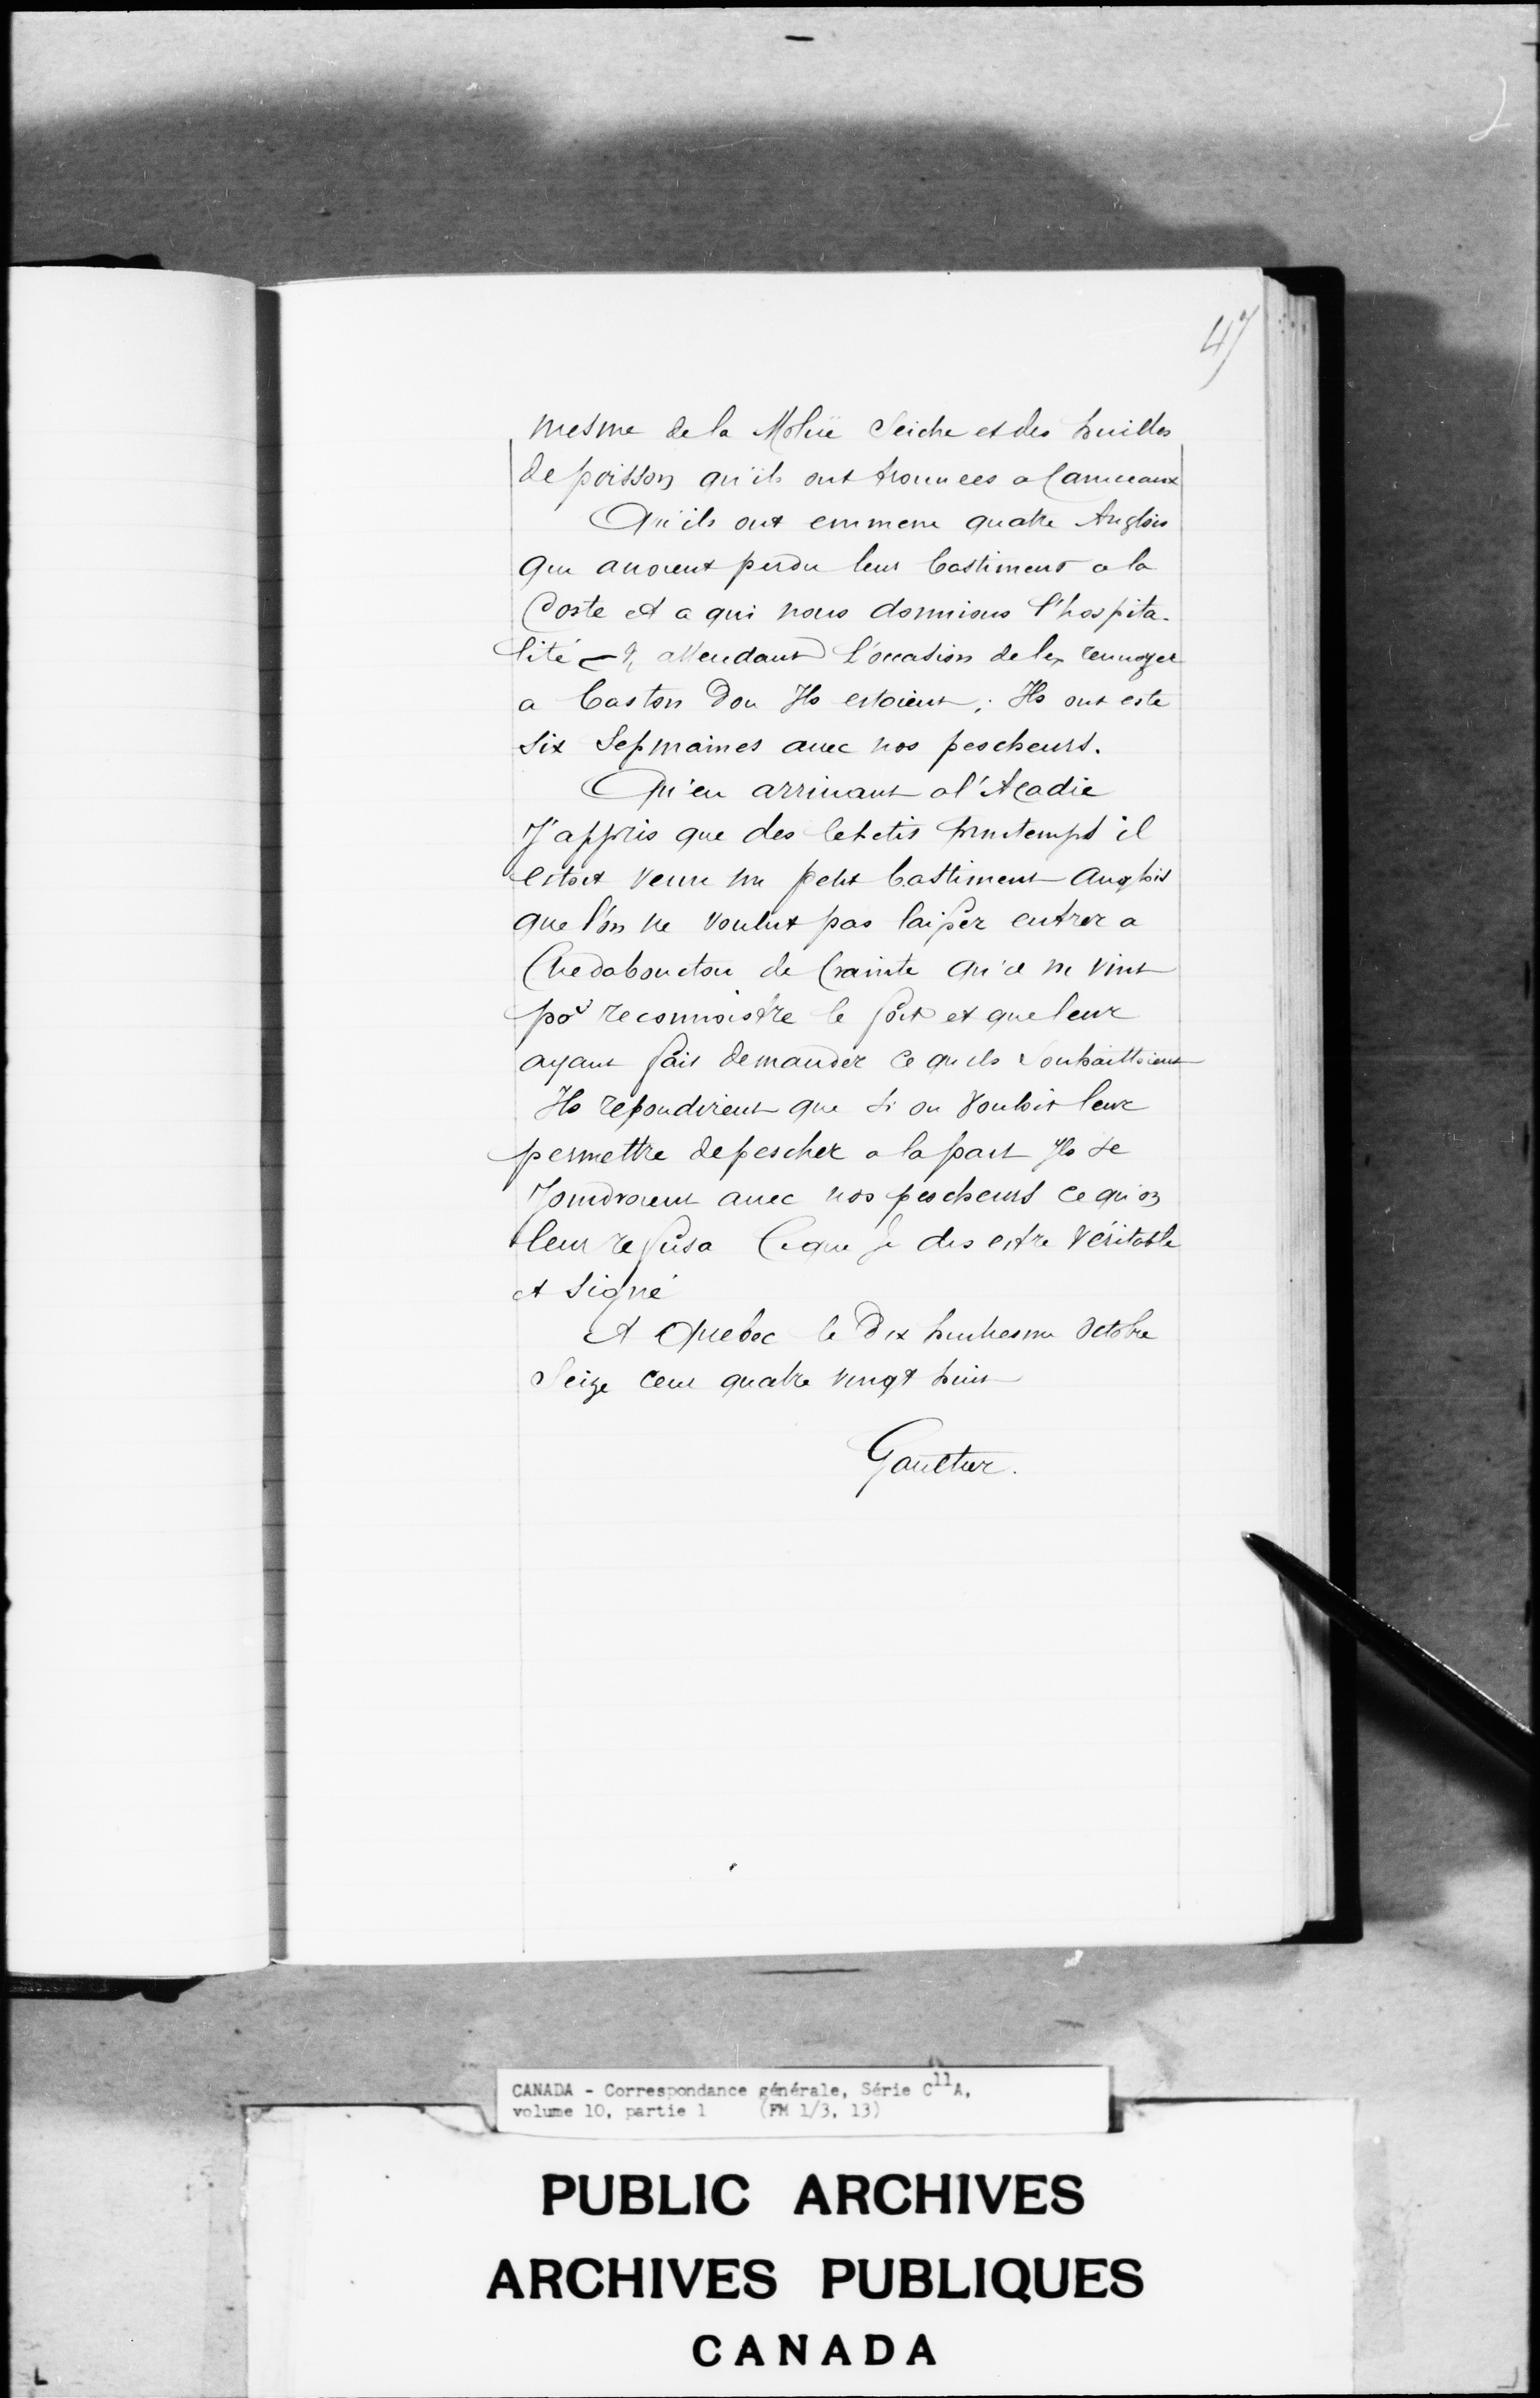 47
mesme de la Moluë Seiche et des huilles
de poisson qu'ils ont trouuees a Campceaux
Qu'ils ont emmene quatre Anglois
qui auoient perdu leur bastiment a la
Coste et a qui nous donnions l'hospita-
lité attendant l'occasion de les renuoyer
a Baston Dou Ils estoient; Ils ont este
Six Sepmaines auec nos pescheurs.
Qu'en arriuant a l'Acadie
J'appris que des le printemps il
estoit venu un petit bastiment Anglois
que l'on ne voulut pas laisser entrer a
Chedabouctou de Crainte qu'il ne vint
por reconnoistre le fort et que leur
ayant fait demander ce quils Souhaittoient
Ils repondirent que si on vouloit leur
permettre de pescher a la part Ils se
Joindroient auec nos pescheurs ce qu'on
leur refusa Ce que Je dis estre Véritable
et Signé
A Quebec le Dix huictiesme Octobre
Seize Cent quatre vingt huit
Gaultier.
CANADA - Correspondance générale, Série C11A,
volume 10, partie 1 (FM 1/3, 13)
PUBLIC ARCHIVES
ARCHIVES PUBLIQUES
CANADA